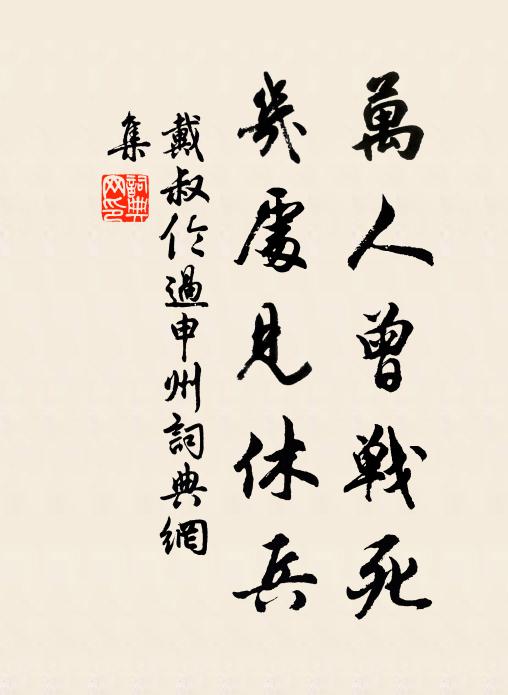 萬人曾戰死
幾處見休兵
戴叔倫過申州詞典網
集
詞典網印